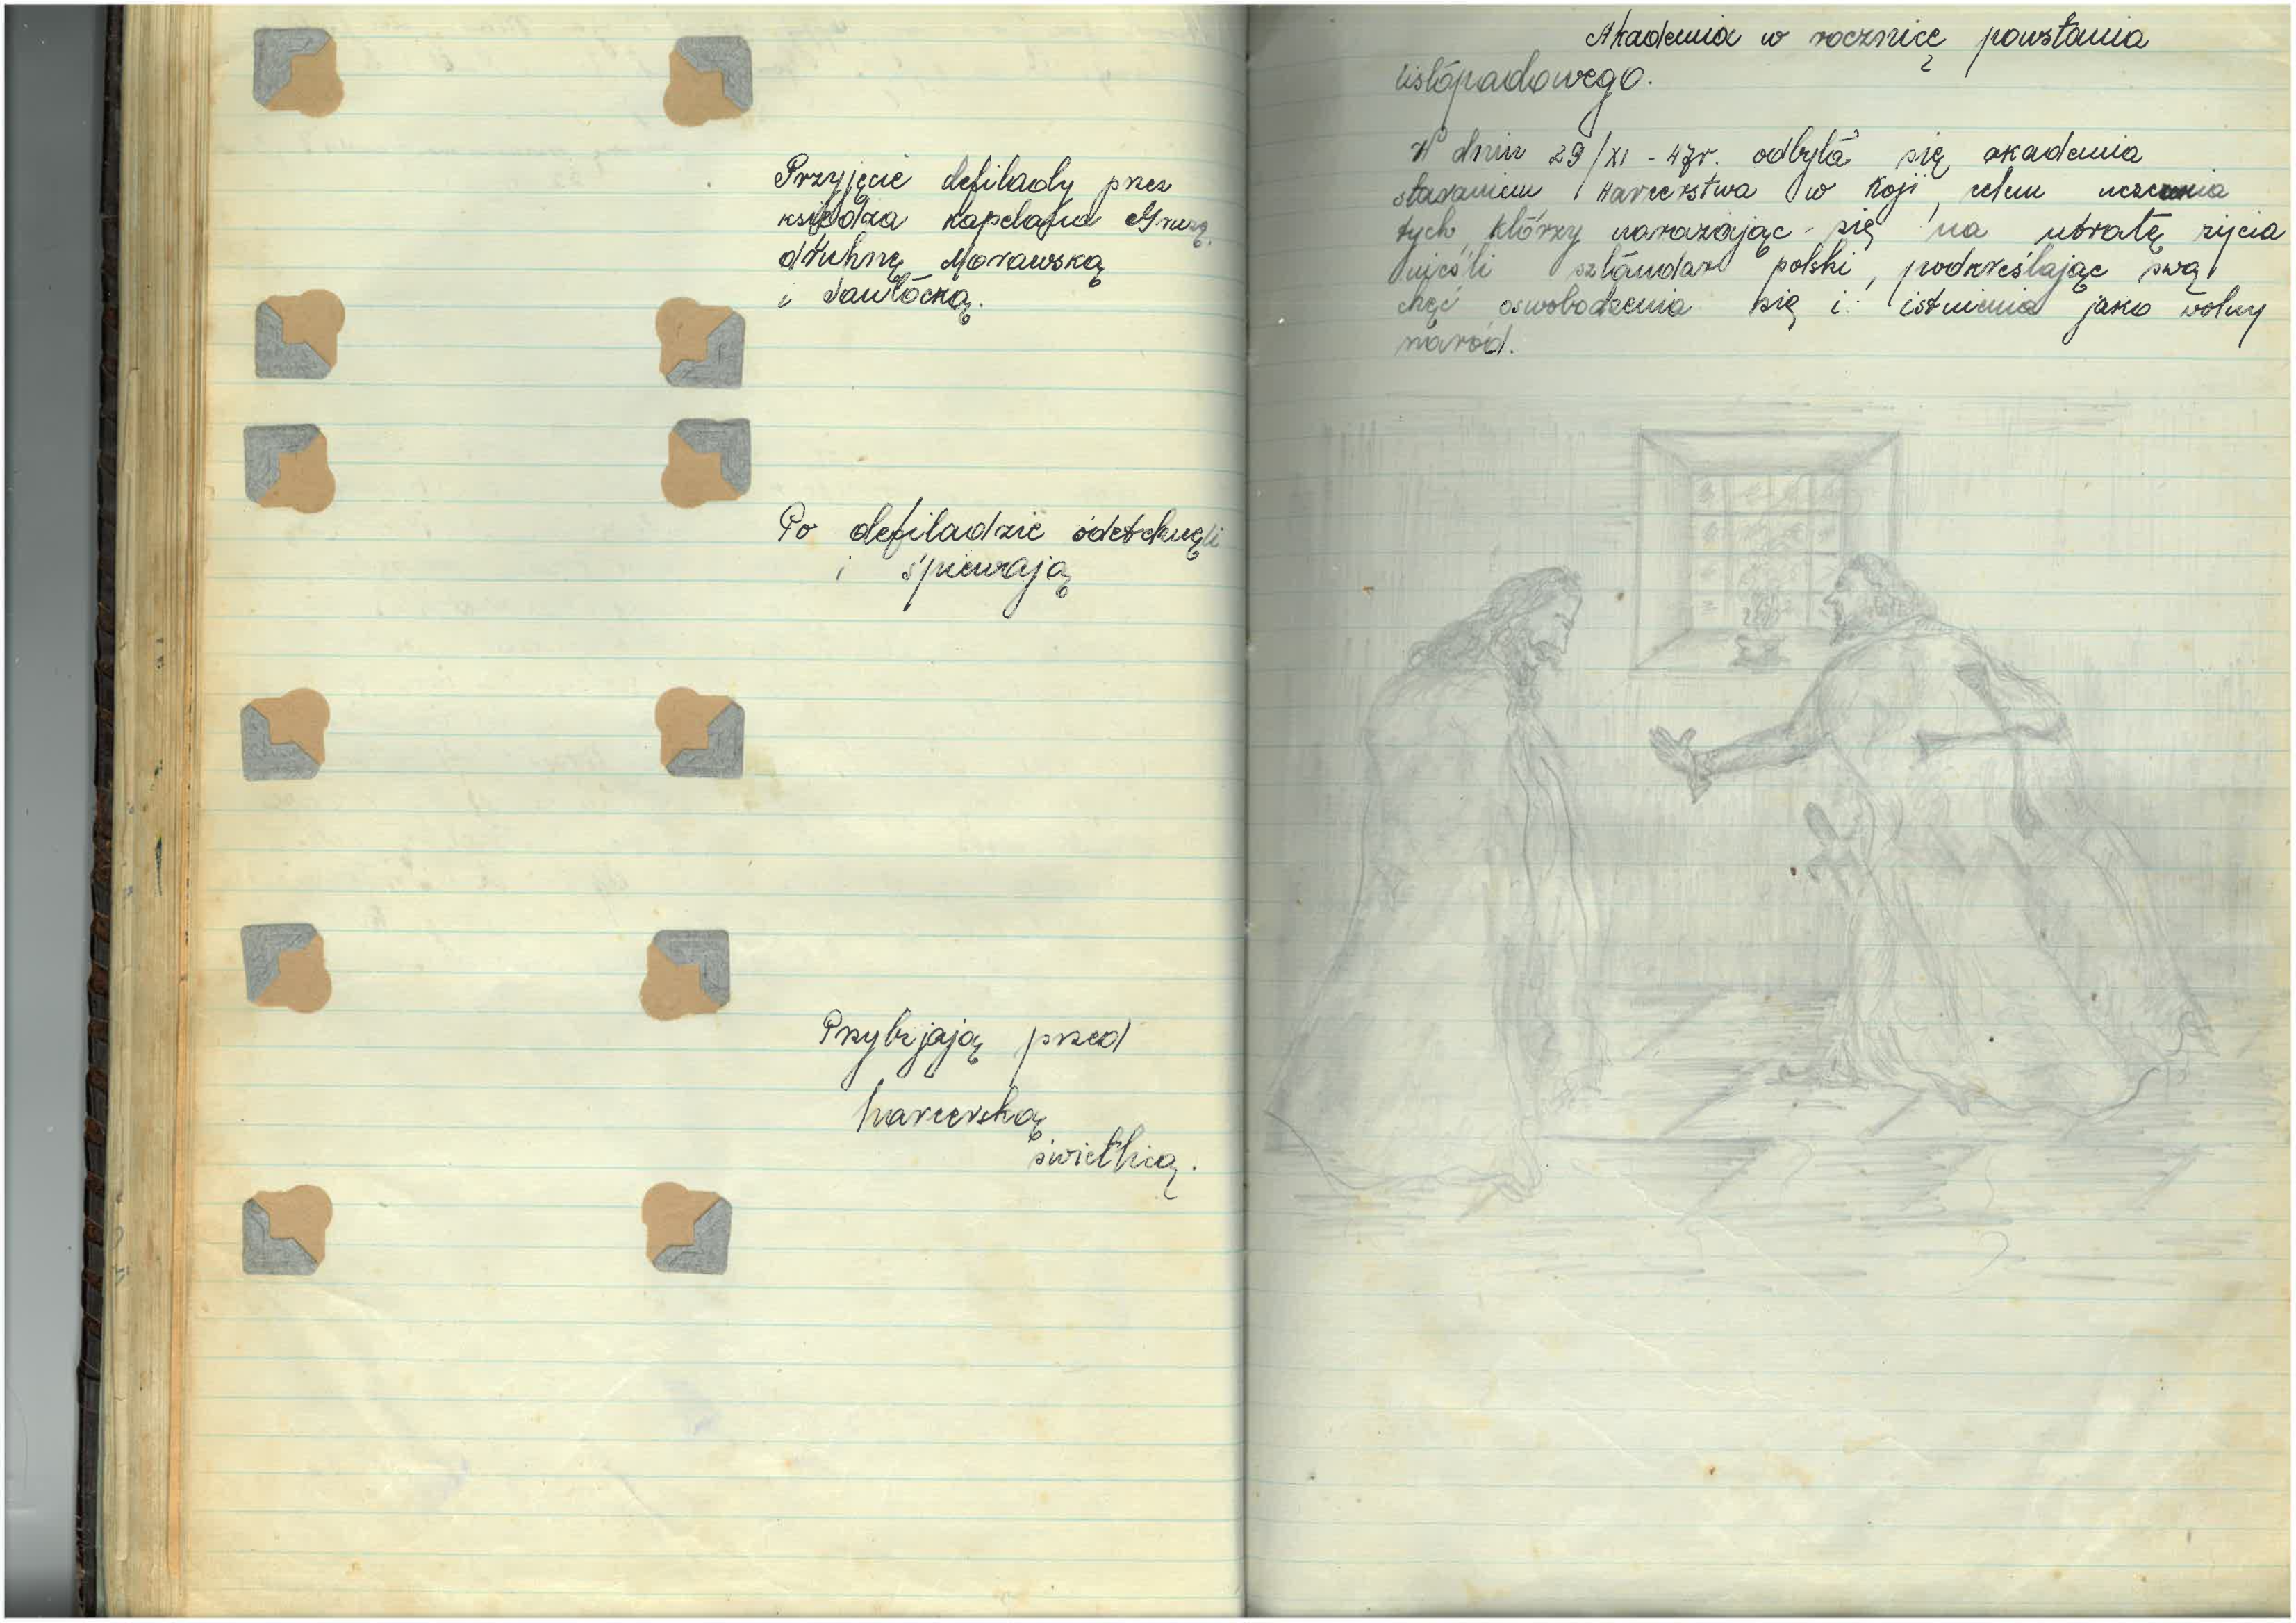 Przyjęcie defilady przez
księdza kapelana Gruzę,
druhnę Morawską
i Sawłocką.
Po defiladzie odetchnęli
i śpiewają
Przybijają przed
harcerską
świetlicą.
Akademia w rocznicę powstania
listopadowego.
W dniu 29/XI - 47r. odbyła się akademia
staraniem Harcerstwa w Koji, celem uczczenia
tych, którzy narażając się na utratę życia
nieśli sztandar polski, podkreślając swą
chęć oswobodzenia się i istnienia jako wolny
naród.